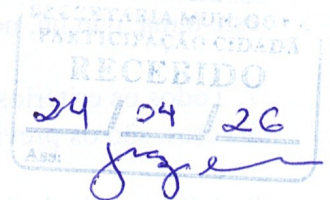 SECRETARIA MUN. GOV.
PARTICIPAÇÃO CIDADÃ
RECEBIDO
24 / 04 / 26
Ass: